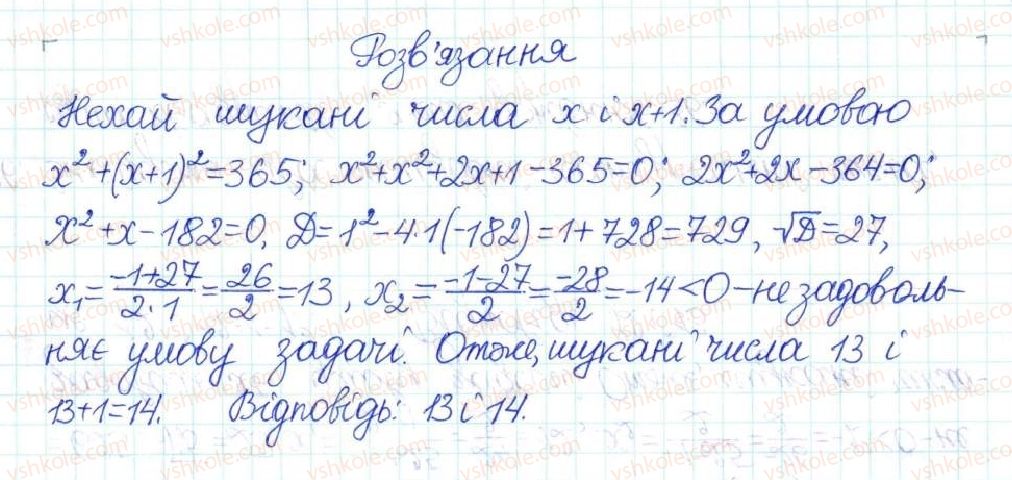 Розв'язання
Нехай шукані числа x і x+1. За умовою
x²+(x+1)²=365; x²+x²+2x+1-365=0; 2x²+2x-364=0;
x²+x-182=0, D=1²-4·1(-182)=1+728=729, √D=27,
x₁=(-1+27)/(2·1)=26/2=13, x₂=(-1-27)/2=-28/2=-14<0-не задоволь-
няє умову задачі. Отже, шукані числа 13 і
13+1=14. Відповідь: 13 і 14.
vshkole.com